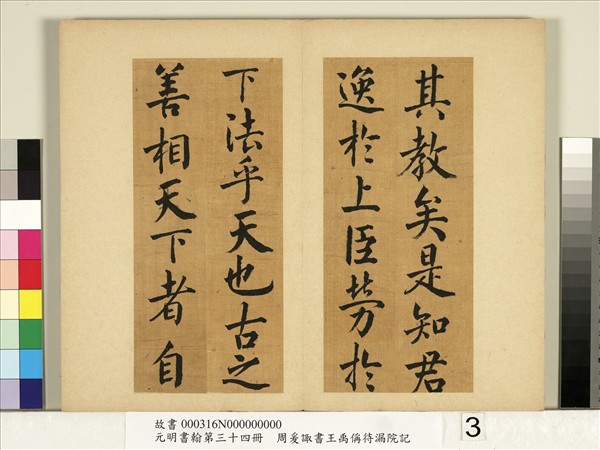 其教矣是知君
逸於上臣勞於
下法乎天也古之
善相天下者自
故書 000316N000000000
元明書翰第三十四冊　周爰諏書王禹偁待漏院記
3